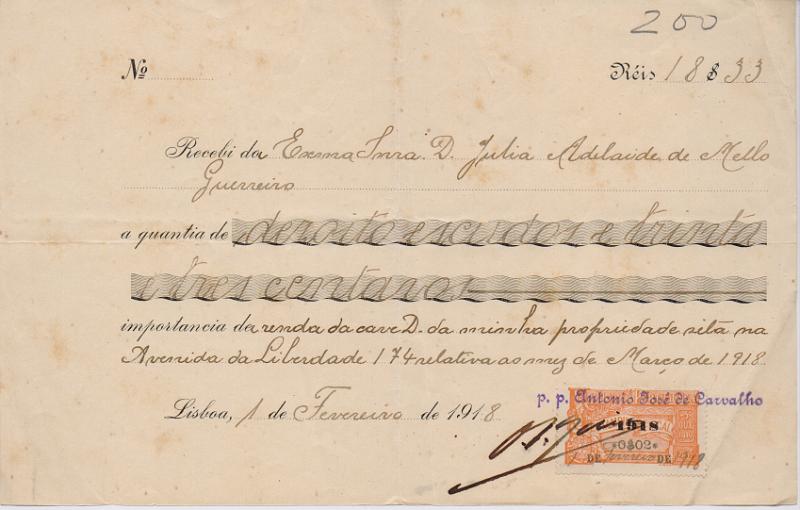 200
Nº Réis 18$33
Recebi da Exma Snra. D. Julia Adelaide de Mello
Guerreiro
a quantia de dezoito escudos e trinta
e tres centavos
importancia da renda da cave D. da minha propriedade sita na
Avenida da Liberdade 174 relativa ao mez de Março de 1918
Lisboa, 1 de Fevereiro de 1918
p. p. Antonio José de Carvalho
1918
0$02
1 DE Fevereiro DE 1918